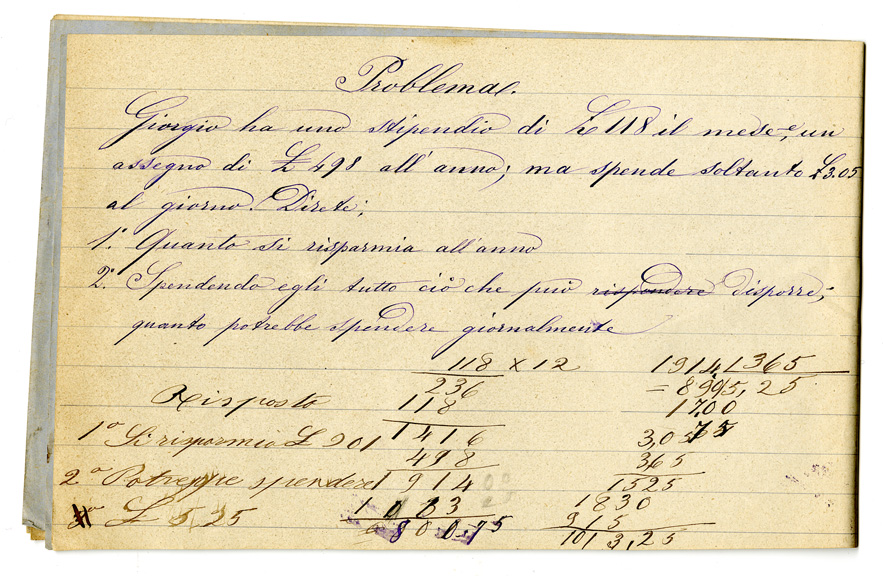 Problema.
Giorgio ha uno stipendio di £ 118 il mese e, un
assegno di £ 498 all' anno; ma spende soltanto £ 3.05
al giorno. Direte;
1.° Quanto si risparmia all'anno
2.° Spendendo egli tutto ciò che può rispondere disporre,
quanto potrebbe spendere giornalmente
118 x 12
236
118
1416
498
1914
1083
800,75
1914,1365
= 8995,25
1700
75
3,05
365
1525
1830
915
1013,25
Risposto
1° Si risparmia £ 901
2° Potreppe spendere
£ 5,25